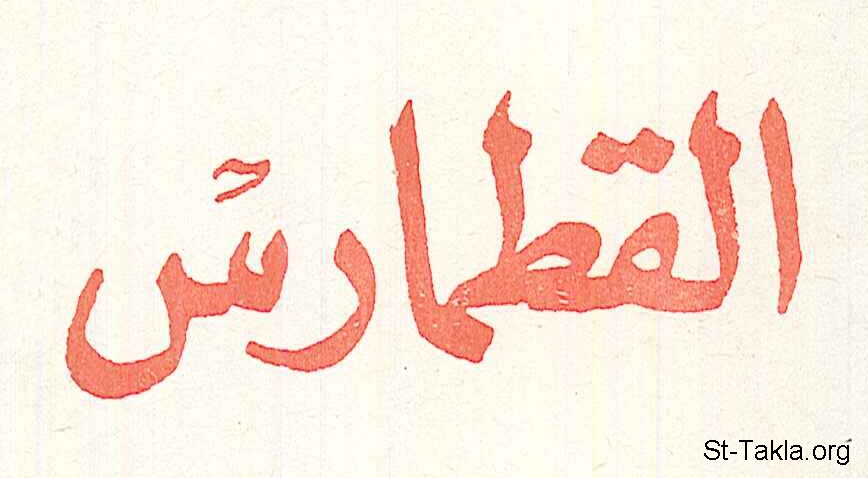 القطمارس
St-Takla.org